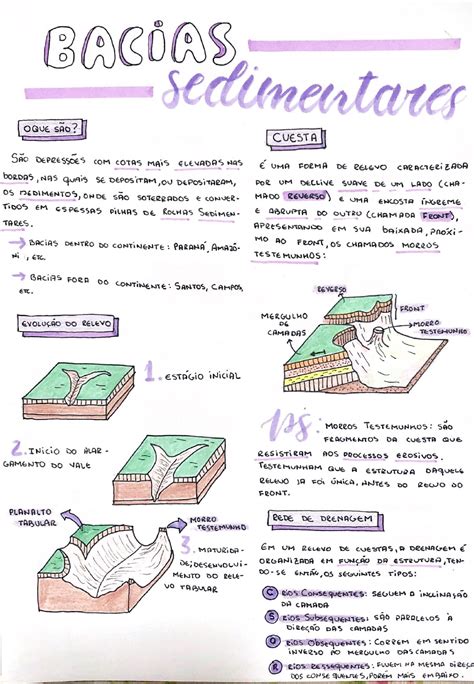 BACIAS
sedimentares
O QUE SÃO?
SÃO DEPRESSÕES COM COTAS MAIS ELEVADAS NAS
BORDAS, NAS QUAIS SE DEPOSITAM, OU DEPOSITARAM,
OS SEDIMENTOS, ONDE SÃO SOTERRADOS E CONVER-
TIDOS EM ESPESSAS PILHAS DE ROCHAS SEDIMEN-
TARES.
→ BACIAS DENTRO DO CONTINENTE: PARANÁ, AMAZÔ-
NI, ETC.
→ BACIAS FORA DO CONTINENTE: SANTOS, CAMPOS,
ETC.
EVOLUÇÃO DO RELEVO
1. ESTÁGIO INICIAL
2. INICIO DO ALAR-
GAMENTO DO VALE
PLANALTO
TABULAR
MORRO
TESTEMUNHO
3. MATURIDA-
DE; DESENVOLVI-
MENTO DO RELE-
VO TABULAR
CUESTA
É UMA FORMA DE RELEVO CARACTERIZADA
POR UM DECLIVE SUAVE DE UM LADO (CHA-
MADO REVERSO) E UMA ENCOSTA ÍNGREME
E ABRUPTA DO OUTRO (CHAMADA FRONT),
APRESENTANDO EM SUA BAIXADA, PRÓXI-
MO AO FRONT, OS CHAMADOS MORROS
TESTEMUNHOS:
REVERSO
MERGULHO
DE
CAMADAS
FRONT
MORRO
TESTEMUNHO
PS: MORROS TESTEMUNHOS: SÃO
FRAGMENTOS DA CUESTA QUE
RESISTIRAM AOS PROCESSOS EROSIVOS.
TESTEMUNHAM QUE A ESTRUTURA DAQUELE
RELEVO JÁ FOI ÚNICA, ANTES DO RECUO DO
FRONT.
REDE DE DRENAGEM
EM UM RELEVO DE CUESTAS, A DRENAGEM É
ORGANIZADA EM FUNÇÃO DA ESTRUTURA, TEN-
DO-SE ENTÃO, OS SEGUINTES TIPOS:
C RIOS CONSEQUENTES: SEGUEM A INCLINAÇÃO
DA CAMADA
S RIOS SUBSEQUENTES: SÃO PARALELOS À
DIREÇÃO DAS CAMADAS
O RIOS OBSEQUENTES: CORREM EM SENTIDO
INVERSO NO MERGULHO DAS CAMADAS
R RIOS RESSEQUENTES: FLUEM NA MESMA DIREÇ
DOS CONSEQUENTES, PORÉM MAIS EMBAIXO.